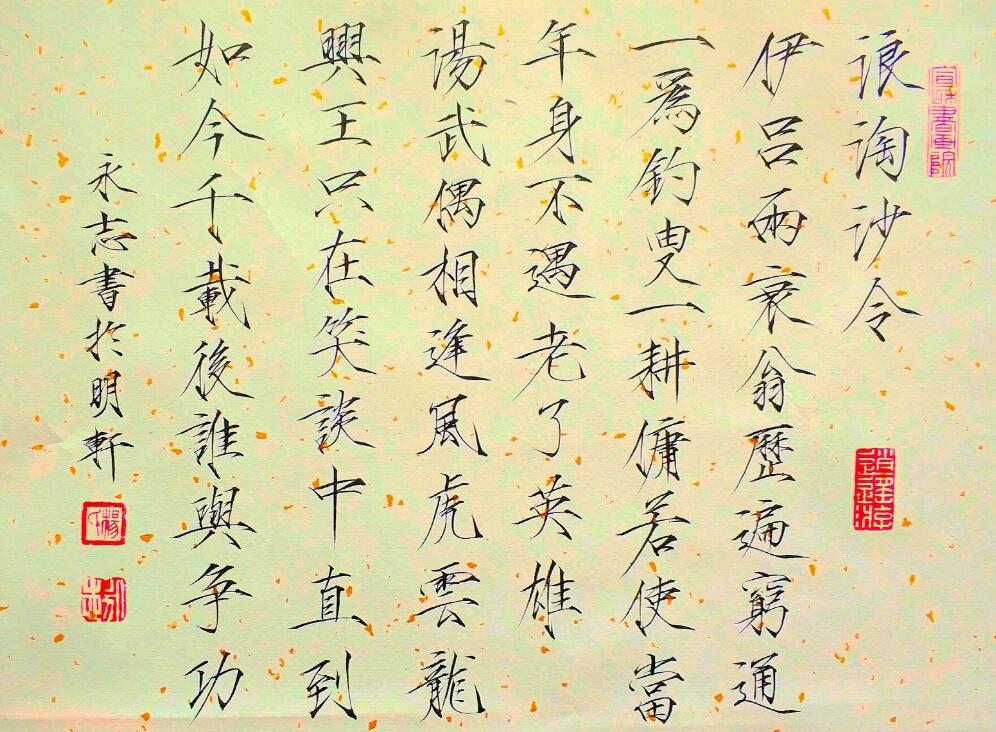 浪淘沙令
伊呂兩衰翁歷遍窮通
一爲釣叟一耕傭若使當
年身不遇老了英雄
湯武偶相逢風虎雲龍
興王只在笑談中直到
如今千載後誰與争功
永志書於明軒
逍遥游